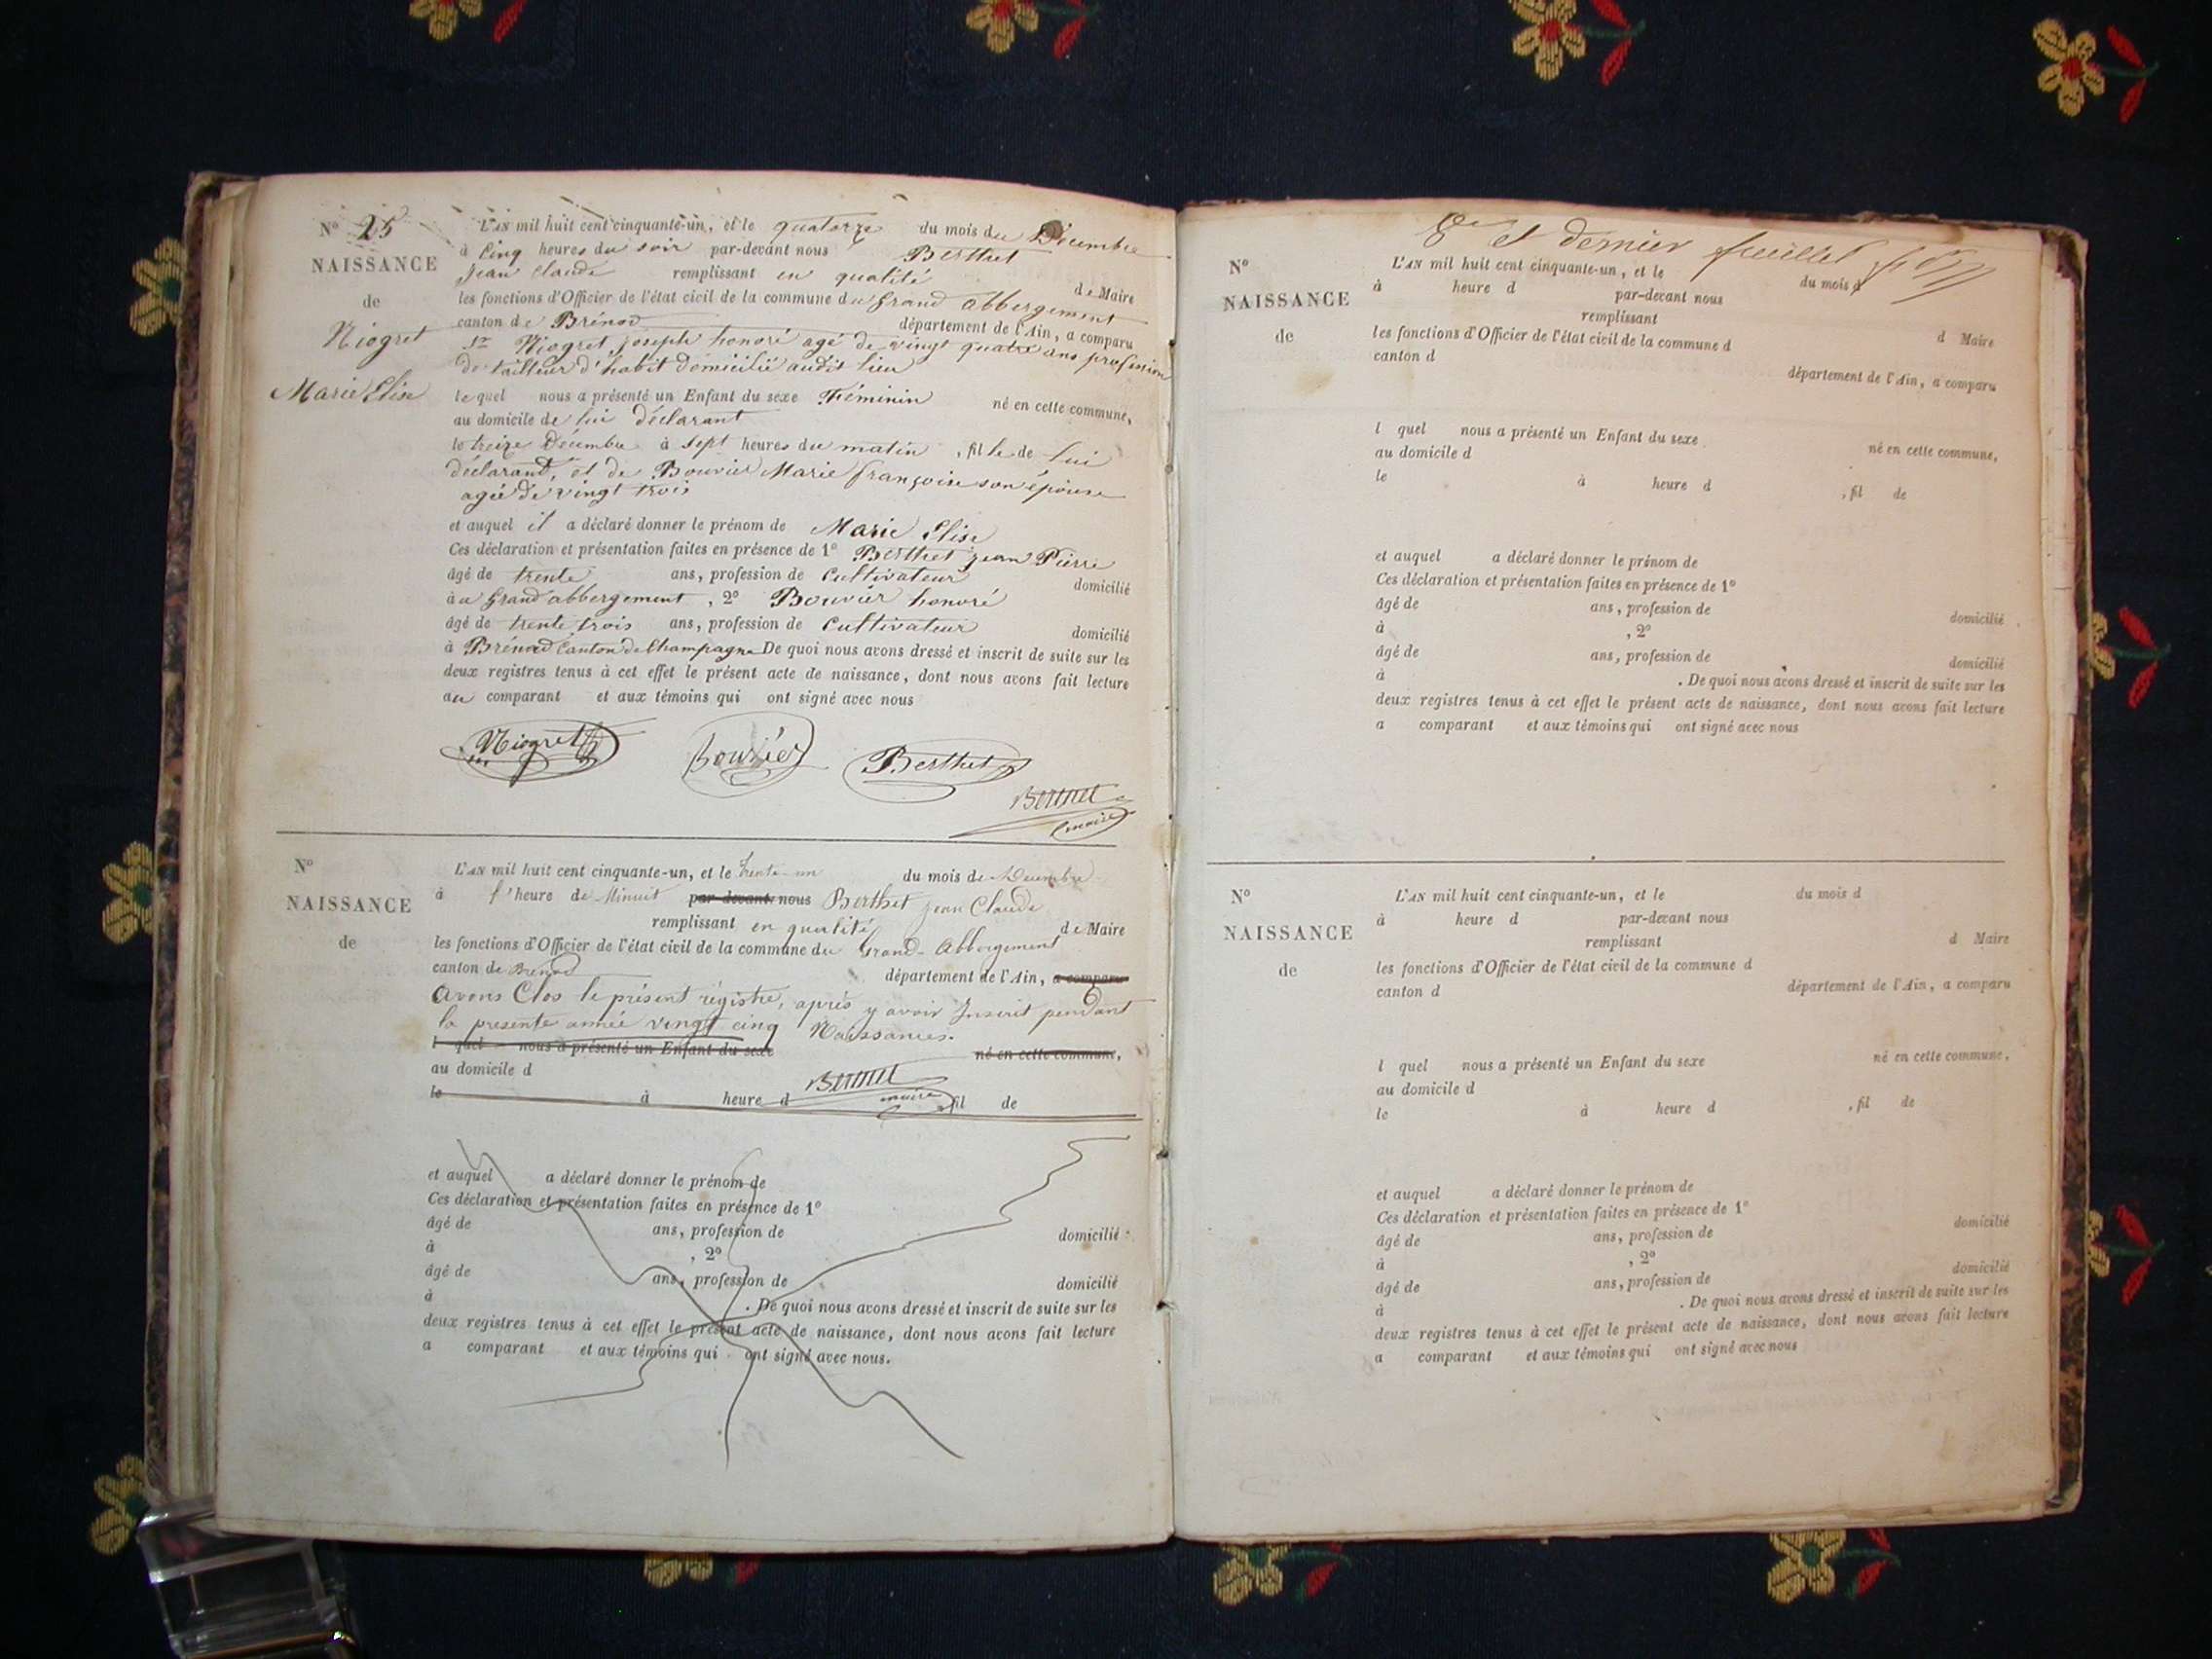 N° 25
NAISSANCE
de
Niogret
Marie Elise
L'AN mil huit cent cinquante-un, et le quatorze du mois de Décembre
à Cinq heures du soir par-devant nous Berthet
jean claude remplissant en qualité de Maire
les fonctions d'Officier de l'état civil de la commune du Grand abbergement
canton de Brénod département de l'Ain, a comparu
sr Niogret joseph honoré agé de vingt quatre ans profession
de tailleur d'habit domicilié audit lieu
le quel nous a présenté un Enfant du sexe Féminin né en cette commune,
au domicile de lui déclarant
le treize Décembre à sept heures du matin , fille de lui
déclarant, et de Bouvier Marie françoise son épouse
agée de vingt trois
et auquel il a déclaré donner le prénom de Marie Elise
Ces déclaration et présentation faites en présence de 1° Berthet jean Pierre
âgé de trente ans, profession de Cultivateur domicilié
à au Grand abbergement , 2° Bouvier honoré
âgé de trente trois ans, profession de Cultivateur domicilié
à Brénod Canton de Champagne De quoi nous avons dressé et inscrit de suite sur les
deux registres tenus à cet effet le présent acte de naissance, dont nous avons fait lecture
au comparant et aux témoins qui ont signé avec nous
Niogret Bouvier Berthet
Berthet
maire
N°
NAISSANCE
de
L'AN mil huit cent cinquante-un, et le trente-un du mois de Décembre
à l'heure de Minuit par-devant nous Berthet jean Claude
remplissant en qualité de Maire
les fonctions d'Officier de l'état civil de la commune du Grand-Abbergement
canton de Brenod département de l'Ain, a comparu
avons Clos le présent régistre, aprés y avoir Inscrit pendant
la presente année vingt cinq Naissances.
l quel nous a présenté un Enfant du sexe né en cette commune,
au domicile d
Berthet
maire
le à heure d fil de
et auquel a déclaré donner le prénom de
Ces déclaration et présentation faites en présence de 1°
âgé de ans, profession de domicilié
à , 2°
âgé de ans, profession de domicilié
à . De quoi nous avons dressé et inscrit de suite sur les
deux registres tenus à cet effet le présent acte de naissance, dont nous avons fait lecture
a comparant et aux témoins qui ont signé avec nous.
8e et dernier feuillet
N°
NAISSANCE
de
L'AN mil huit cent cinquante-un, et le du mois d
à heure d par-devant nous
remplissant d Maire
les fonctions d'Officier de l'état civil de la commune d
canton d département de l'Ain, a comparu
l quel nous a présenté un Enfant du sexe né en cette commune,
au domicile d
le à heure d , fil de
et auquel a déclaré donner le prénom de
Ces déclaration et présentation faites en présence de 1°
âgé de ans, profession de domicilié
à , 2°
âgé de ans, profession de domicilié
à . De quoi nous avons dressé et inscrit de suite sur les
deux registres tenus à cet effet le présent acte de naissance, dont nous avons fait lecture
a comparant et aux témoins qui ont signé avec nous
N°
NAISSANCE
de
L'AN mil huit cent cinquante-un, et le du mois d
à heure d par-devant nous
remplissant d Maire
les fonctions d'Officier de l'état civil de la commune d
canton d département de l'Ain, a comparu
l quel nous a présenté un Enfant du sexe né en cette commune,
au domicile d
le à heure d , fil de
et auquel a déclaré donner le prénom de
Ces déclaration et présentation faites en présence de 1°
âgé de ans, profession de domicilié
à , 2°
âgé de ans, profession de domicilié
à . De quoi nous avons dressé et inscrit de suite sur les
deux registres tenus à cet effet le présent acte de naissance, dont nous avons fait lecture
a comparant et aux témoins qui ont signé avec nous